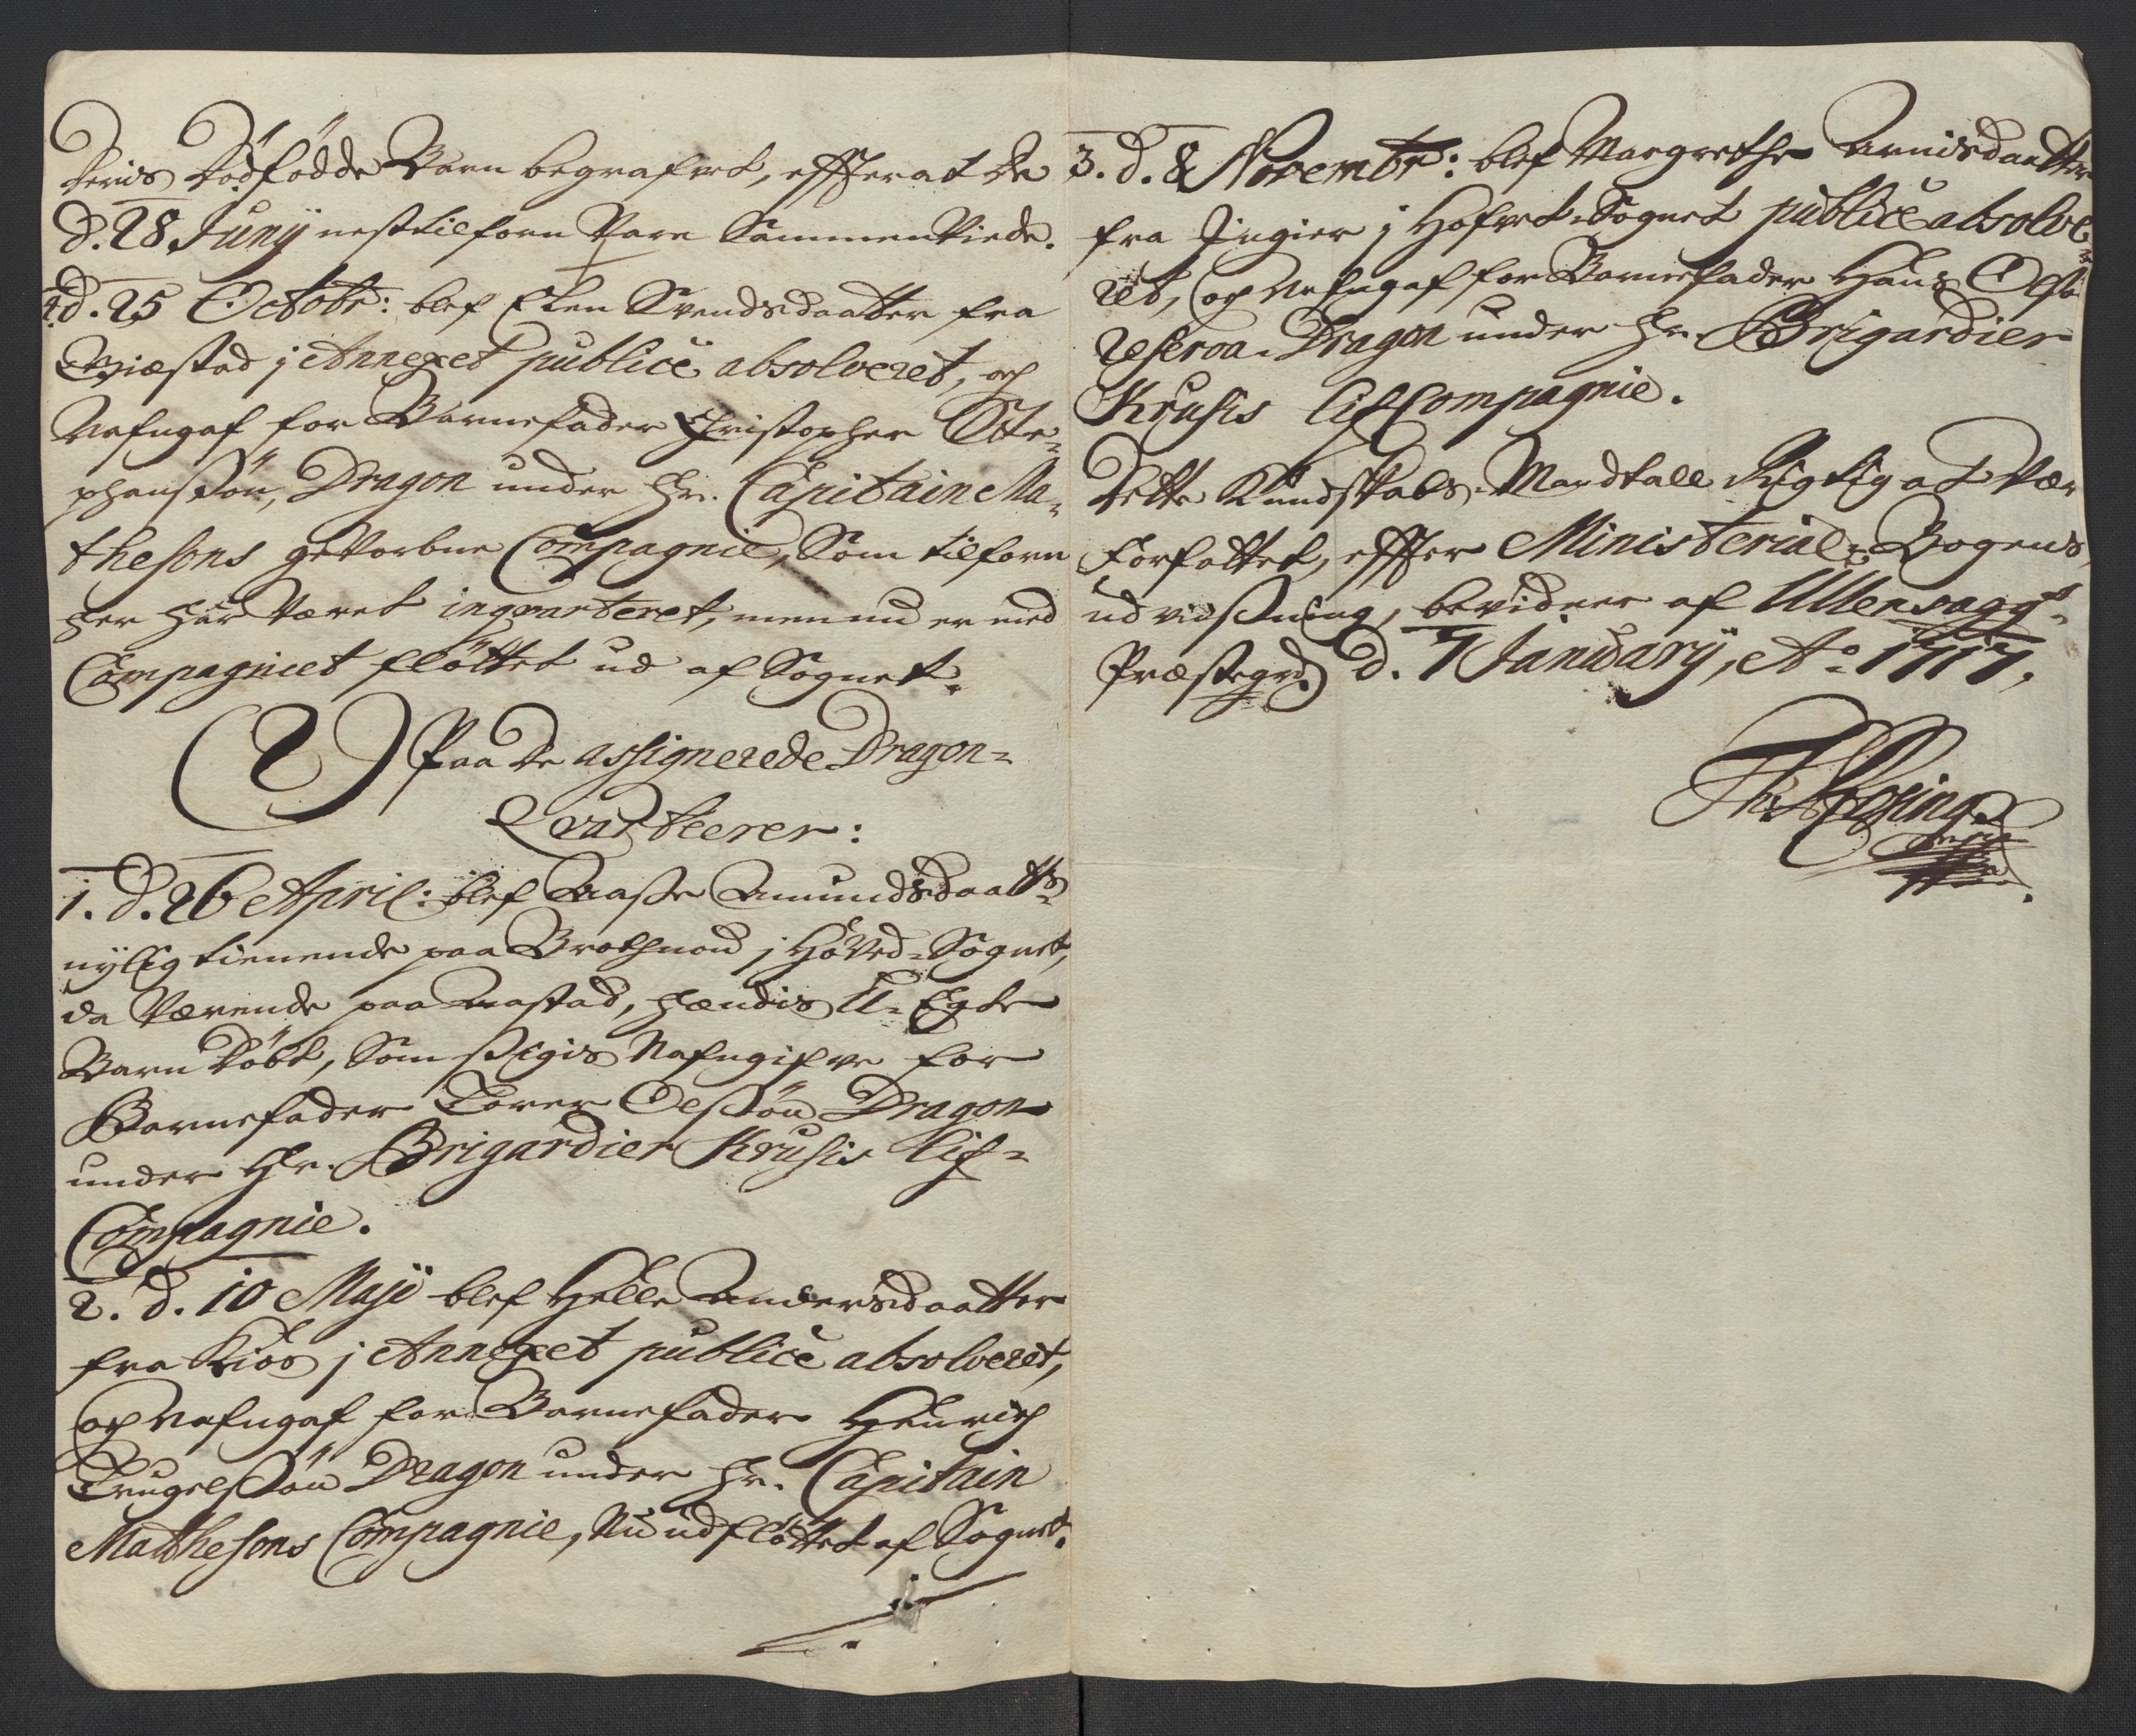 deris dødfødde Barn begrafvet, effterat de
d. 28 Junÿ nest tilforn Vare Sammenviede.
4. d. 25 Octobr: blef Elen Svendsdaatter fra
i Annexet publicè absolveret, og
Nafngaf for Barnefader Christopher Ste-
phensSøn, Dragon under Hr. Capitain Ma-
thesons geworbne Compagnie, Som tilforn
her har Været inqvarteret, men nu er med
Compagniet fløttet ud af Sognet.
Paa de assignerede Dragon-
Qvarteerer:
1. d. 26 April: blef Aase Amundsdaatt:
nylig tienende paa i Hoved-Sognet,
da Værende paa Aastad, hændis U-Egte
Barn døbt, Som Sigis Nafngifve for
Barnefader Torer OelsSøn Dragon
under Hr. Brigardier Krusis Lif-
Compagnie.
2. d. 10 Maji blef Helle Andersdaatter
fra Kiøs i Annexet publicè absolveret,
og Nafngaf for Barnefader Henrich
TrugelsSøn Dragon under Hr. Capitain
Mathesons Compagnie, Nu udfløttet af Sognet.
3. d. 8 Novembr: blef Margrethe Arnisdaatter
fra Ingier i Hofvet-Sognet publicè absolve-
ret, og Nafngaf for Barnefader Hans
Dragon under Hr. Brigardier
Krusis LifCompagnie.
Dette Kundskabs-Mandtall Rigtig at Vær
Forfattet, effter Ministerial-Bogens
udviisning, bevidner af Ullensaggs-
Præstegrd. d. 7 January, Ao 1717.